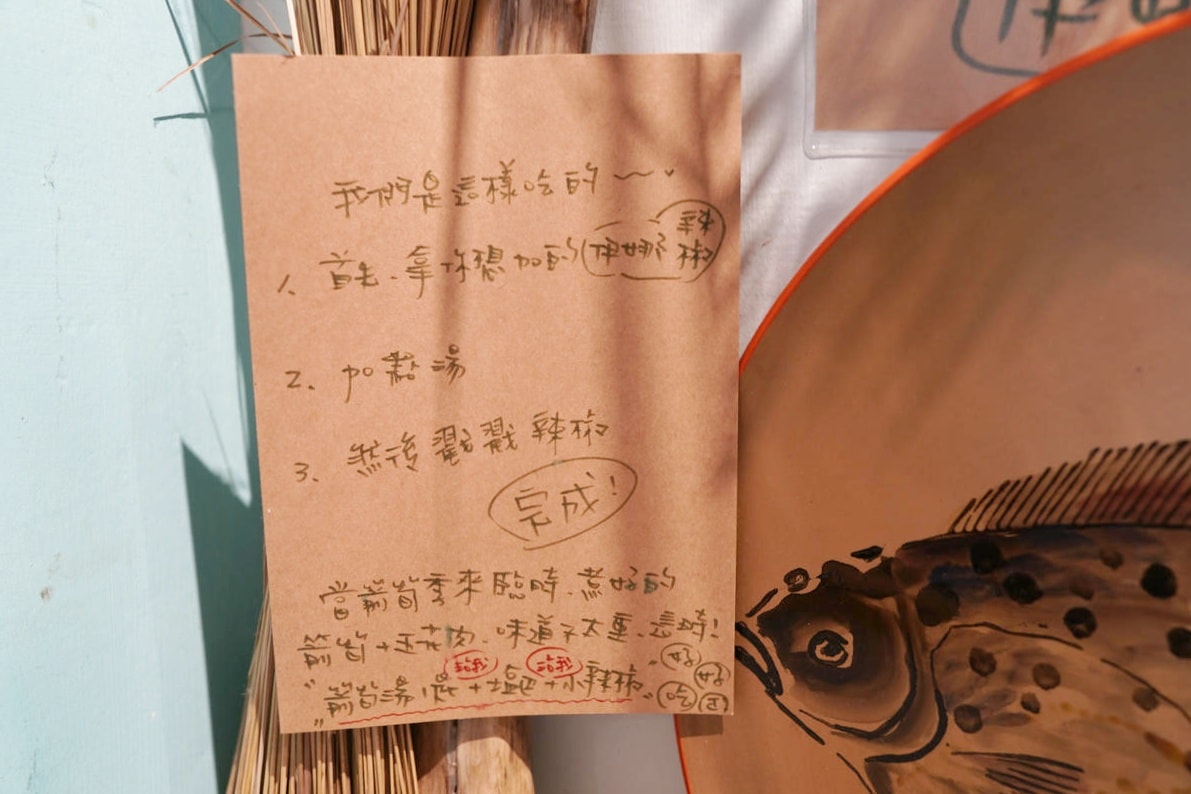 我們是這樣吃的~
1、首先、拿你想加的伊娜辣椒
2. 加點湯
3. 然後戳戳辣椒
完成!
當箭筍季來臨時、煮好的
箭筍+五花肉、味道不太重、這時!
給我 給我
"箭筍湯+鹽巴+小辣椒"好好吃